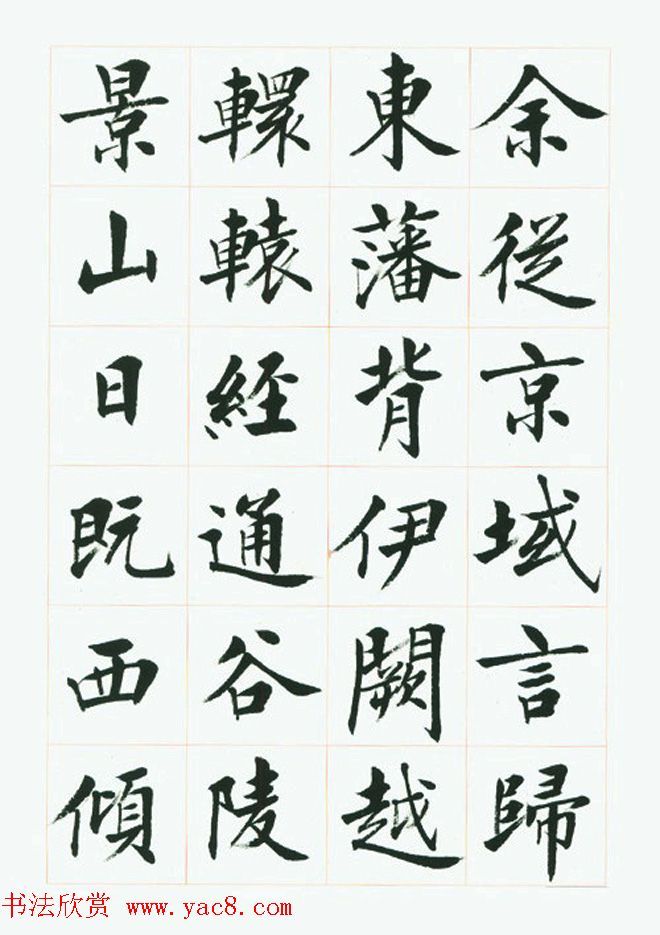 余從京域言歸
東藩背伊闕越
轘轅經通谷陵
景山日既西傾
书法欣赏 www.yac8.com